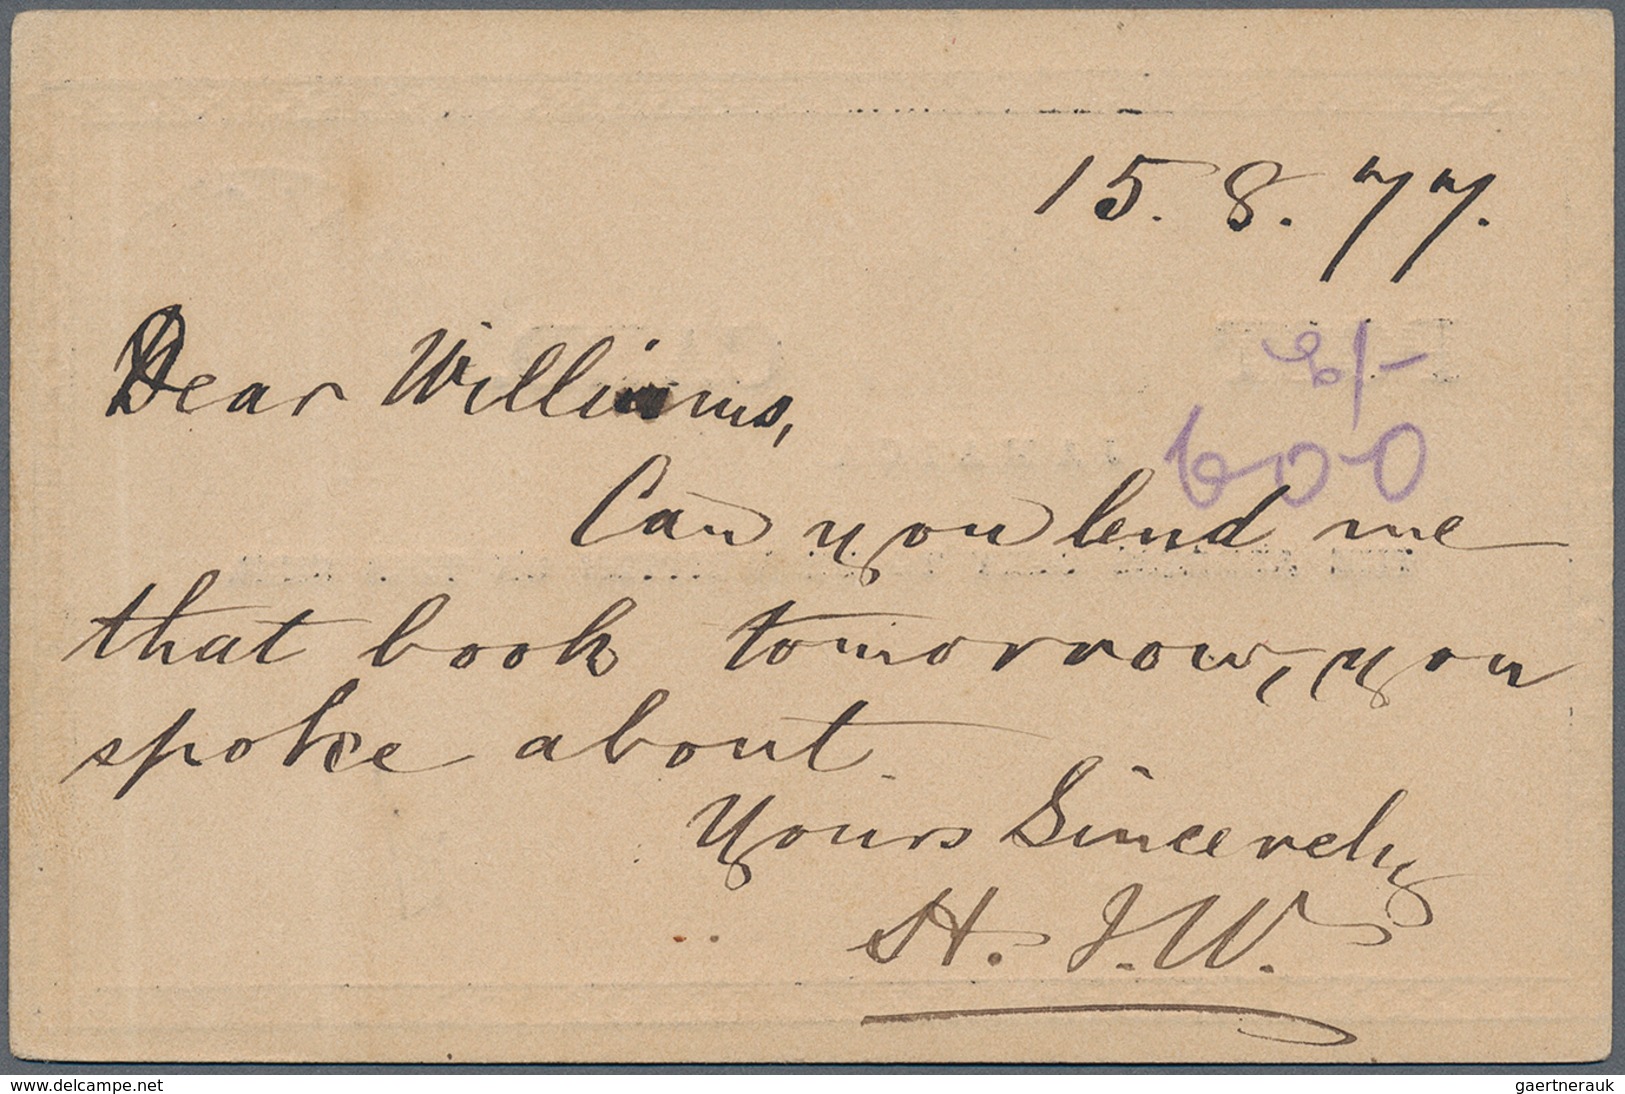 15. 8. 77.
Dear Williams,
600
Can you lend me
that book tomorrow, you
spoke about.
Yours Sincerely
H. J. W.
www.delcampe.net
gaertnerauk